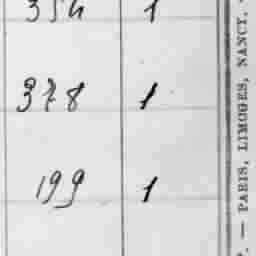 354 1
378 1
199 1
. — PARIS, LIMOGES, NANCY.